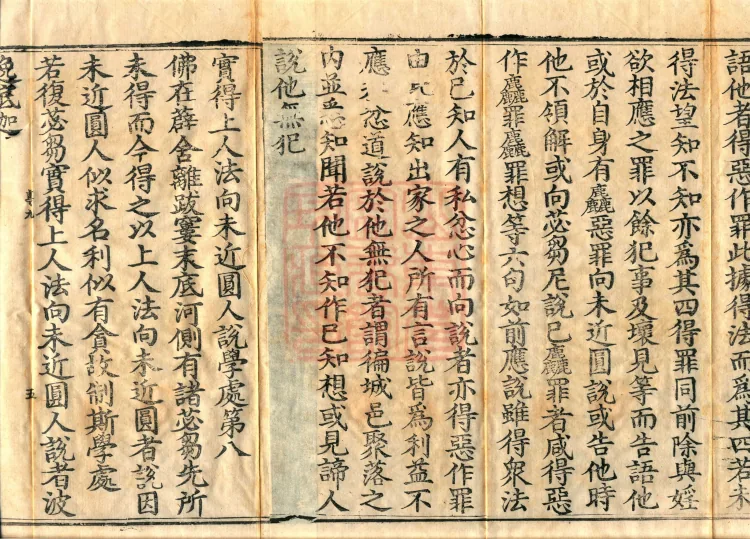 語他者得惡作罪此據得法而爲其四若未
得法望知不知亦爲其四得罪同前除與婬
欲相應之罪以餘犯事及壞見等而告語他
或於自身有麤惡罪向未近圓說或告他時
他不領解或向苾芻尼說已麤罪者咸得惡
作麤罪麤罪想等六句如前應說雖得衆法
於已知人有私忿心而向說者亦得惡作罪
由 應知出家之人所有言說皆爲利益不
應 忿道說於他無犯者謂徧城邑聚落之
內並悉知聞若他不知作已知想或見諦人
說他無犯
實得上人法向未近圓人說學處第八
佛在薜舍離跋窶末底河側有諸苾芻先所
未得而今得之以上人法向未近圓者說因
未近圓人似求名利似有貪故制斯學處
若復苾芻實得上人法向未近圓人說者波
五